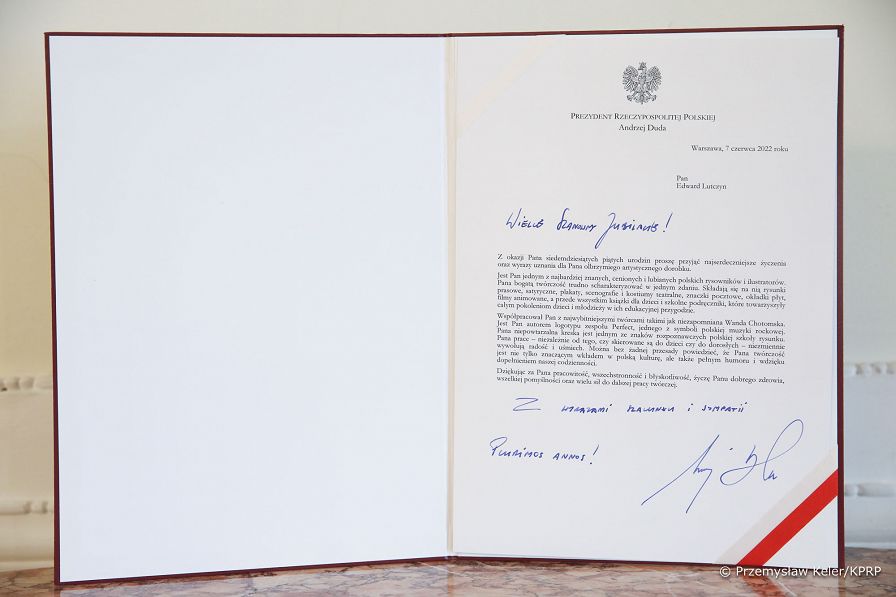 PREZYDENT RZECZYPOSPOLITEJ POLSKIEJ
Andrzej Duda
Warszawa, 7 czerwca 2022 roku
Pan
Edward Lutczyn
Wielce Szanowny Jubilacie!
Z okazji Pana siedemdziesiątych piątych urodzin proszę przyjąć najserdeczniejsze życzenia
oraz wyrazy uznania dla Pana olbrzymiego artystycznego dorobku.
Jest Pan jednym z najbardziej znanych, cenionych i lubianych polskich rysowników i ilustratorów.
Pana bogatą twórczość trudno scharakteryzować w jednym zdaniu. Składają się na nią rysunki
prasowe, satyryczne, plakaty, scenografie i kostiumy teatralne, znaczki pocztowe, okładki płyt,
filmy animowane, a przede wszystkim książki dla dzieci i szkolne podręczniki, które towarzyszyły
całym pokoleniom dzieci i młodzieży w ich edukacyjnej przygodzie.
Współpracował Pan z najwybitniejszymi twórcami takimi jak niezapomniana Wanda Chotomska.
Jest Pan autorem logotypu zespołu Perfect, jednego z symboli polskiej muzyki rockowej.
Pana niepowtarzalna kreska jest jednym ze znaków rozpoznawczych polskiej szkoły rysunku.
Pana prace – niezależnie od tego, czy skierowane są do dzieci czy do dorosłych – niezmiennie
wywołują radość i uśmiech. Można bez żadnej przesady powiedzieć, że Pana twórczość
jest nie tylko znaczącym wkładem w polską kulturę, ale także pełnym humoru i wdzięku
dopełnieniem naszej codzienności.
Dziękując za Pana pracowitość, wszechstronność i błyskotliwość, życzę Panu dobrego zdrowia,
wszelkiej pomyślności oraz wielu sił do dalszej pracy twórczej.
Z wyrazami szacunku i sympatii
Plurimos annos!
© Przemysław Keler/KPRP